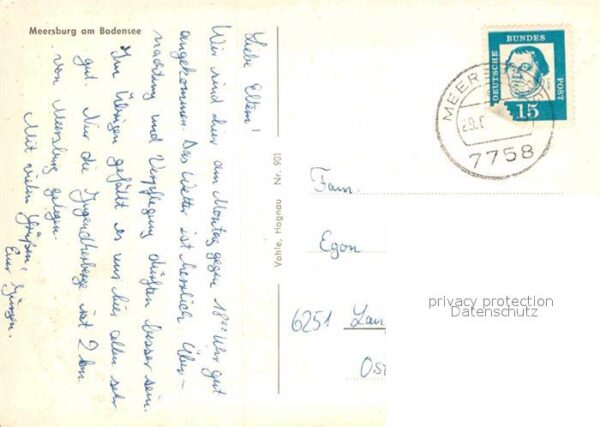 Meersburg am Bodensee
Liebe Eltern!
Wir sind hier am Montag gegen 18⁰⁰ Uhr gut
angekommen. Das Wetter ist herrlich. Über-
nachtung und Verpflegung dürften besser sein.
Im Übrigen gefällt es uns hier allen sehr
gut. Nur die Jugendherberge ist 2 km
von Meersburg gelegen.
Mit vielen Grüßen,
Euer Jürgen.
Vahle, Hagnau Nr. 901
DEUTSCHE BUNDES POST
15
MEER
7758
Fam.
Egon
6251
privacy protection
Datenschutz